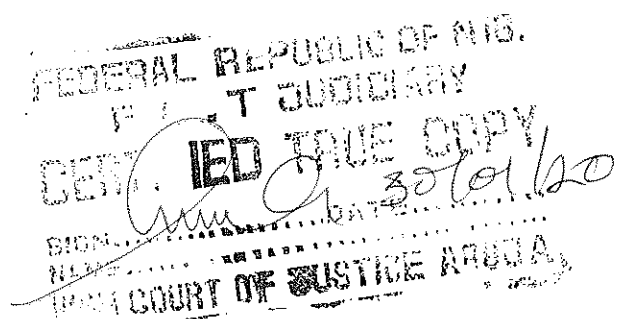 FEDERAL REPUBLIC OF NIG.
JUDICIARY
CERT. IED TRUE COPY
SIGN DATE 30/01/20
NAME
COURT OF JUSTICE ABUJA